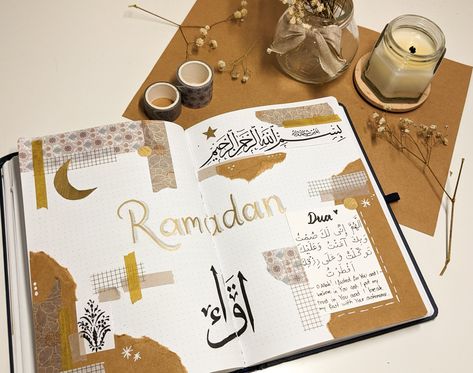 بِسْمِ اللهِ الرَّحْمٰنِ الرَّحِيْمِ
Ramadan
اقرأ
Dua ♥
اَللّٰهُمَّ اِنِّى لَكَ صُمْتُ
وَبِكَ آمَنْتُ وَعَلَيْكَ
تَوَكَّلْتُ وَعَلَى رِزْقِكَ
اَفْطَرْتُ
O Allah! I fasted for You and I
believe in You and I put my
trust in You and I break
my fast with Your sustenance.